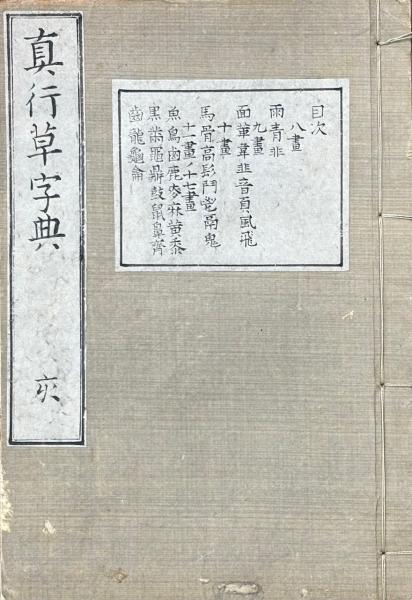 真行草字典
亥
目次
八畫
雨青非
九畫
面革韋韭音頁風飛
十畫
馬骨高髟鬥鬯鬲鬼
十一畫ノ十七畫
魚鳥鹵鹿麥麻黄黍
黒黹黽鼎鼓鼠鼻齊
齒龍龜龠